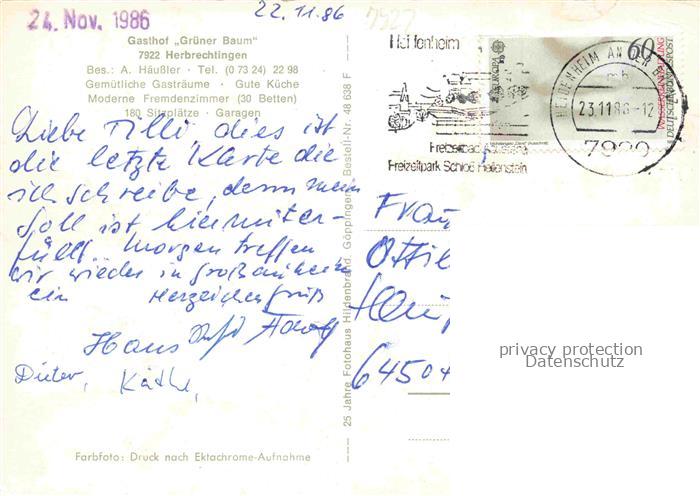 24. Nov. 1986
22.11.86
7922
Gasthof „Grüner Baum"
7922 Herbrechtingen
Bes.: A. Häußler · Tel. (0 73 24) 22 98
Gemütliche Gasträume · Gute Küche
Moderne Fremdenzimmer (30 Betten)
180 Sitzplätze · Garagen
Liebe Tilli, dies ist
die letzte Karte die
ich schreibe, denn mein
Soll ist hiermit er-
füllt. Morgen treffen
wir wieder in Großauheim
ein Herzlichen Gruß
Hans Adolf
Dieter, Käthe,
Farbfoto: Druck nach Ektachrome-Aufnahme
25 Jahre Fotohaus Hildenbrand, Göppingen Bestell-Nr. 48 638 F
Heidenheim
Freizeitpark Schloß Hellenstein
EUROPA
60
DEUTSCHE BUNDESPOST
HEIDENHEIM AN DER B
mb
23.11.86-12
7920
Frau
Ottil
Hau
6450
privacy protection
Datenschutz